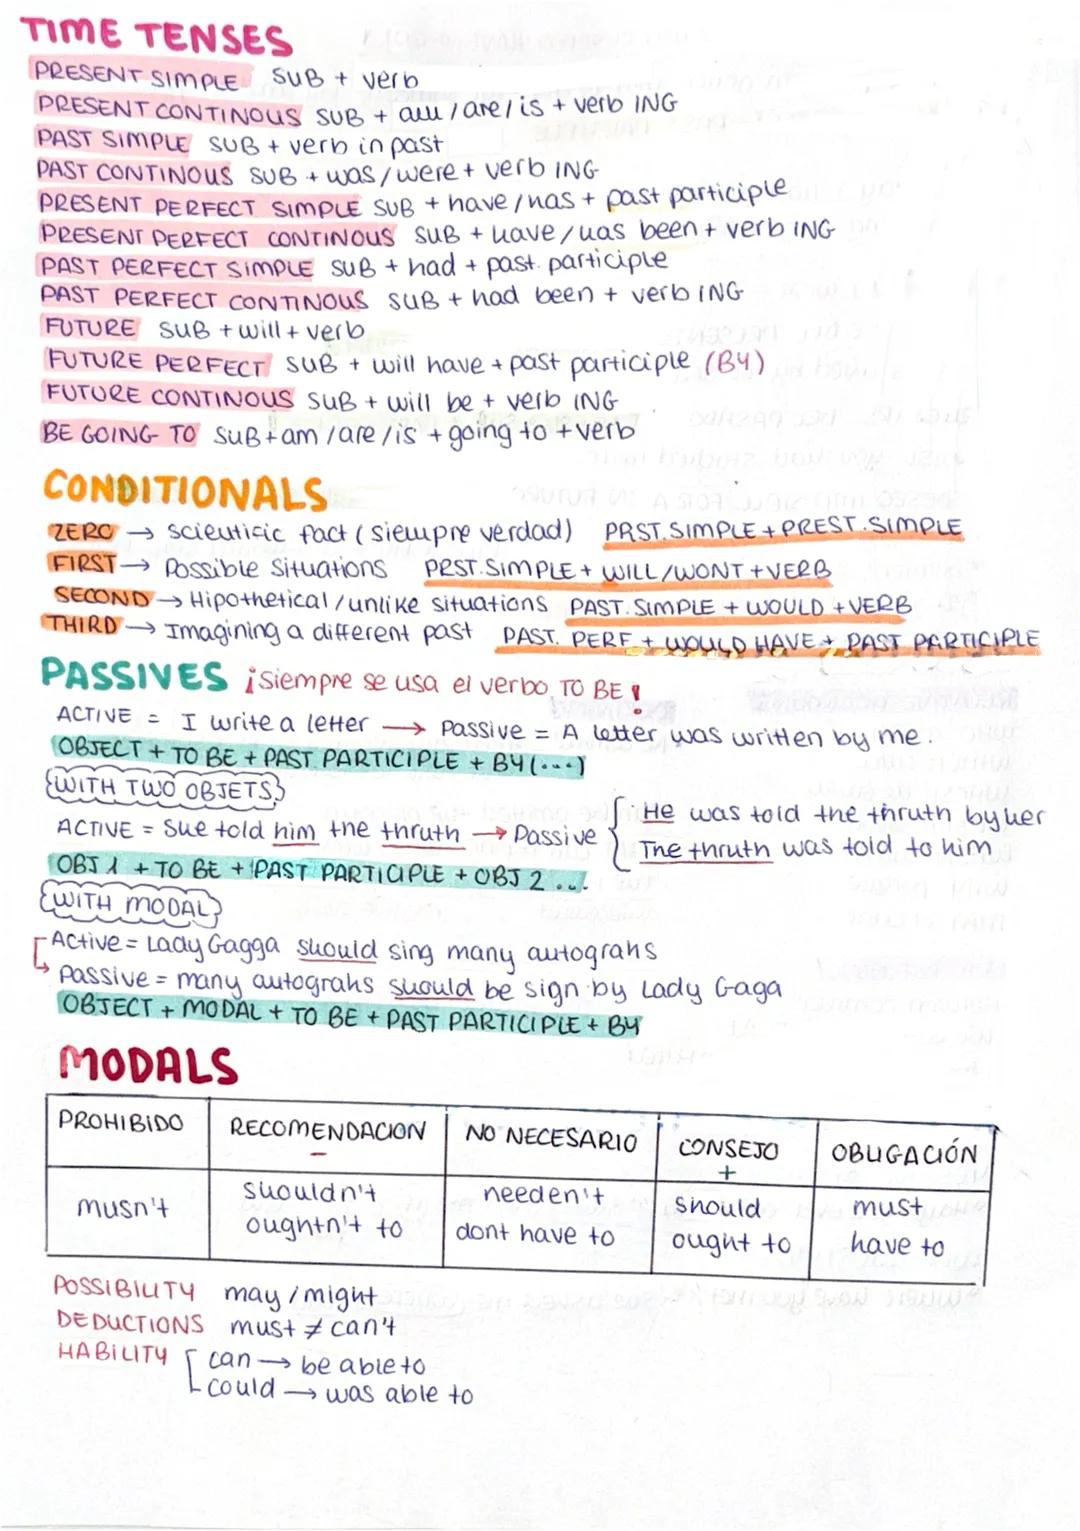 TIME TENSES
PRESENT SIMPLE SUB + verb
PRESENT CONTINOUS SUB + am / are / is + verb ING
PAST SIMPLE SUB + verb in past
PAST CONTINOUS SUB + was / were + verb ING
PRESENT PERFECT SIMPLE SUB + have / has + past participle
PRESENT PERFECT CONTINOUS SUB + have / has been + verb ING
PAST PERFECT SIMPLE SUB + had + past. participle
PAST PERFECT CONTINOUS SUB + had been + verb ING
FUTURE SUB + will + verb
FUTURE PERFECT SUB + will have + past participle (BY)
FUTURE CONTINOUS SUB + will be + verb ING
BE GOING TO SUB + am / are / is + going to + verb
CONDITIONALS
ZERO → scientific fact ( siempre verdad) PRST. SIMPLE + PREST. SIMPLE
FIRST → Possible situations PRST. SIMPLE + WILL / WONT + VERB
SECOND → Hipothetical / unlike situations PAST. SIMPLE + WOULD + VERB
THIRD → Imagining a different past PAST. PERF + WOULD HAVE + PAST PARTICIPLE
PASSIVES ¡siempre se usa el verbo TO BE!
ACTIVE = I write a letter → Passive = A letter was written by me.
OBJECT + TO BE + PAST. PARTICIPLE + BY (...)
WITH TWO OBJETS
ACTIVE = She told him the thruth → Passive { He was told the thruth by her
The thruth was told to him
OBJ 1 + TO BE + PAST PARTICIPLE + OBJ 2 ...
WITH MODAL
Active = Lady Gagga should sing many autograhs
Passive = many autograhs should be sign by Lady Gaga
OBJECT + MODAL + TO BE + PAST PARTICIPLE + BY
MODALS
PROHIBIDO RECOMENDACION - NO NECESARIO CONSEJO + OBLIGACIÓN
musn't shouldn't needen't should must
oughtn't to dont have to ought to have to
POSSIBILITY may / might
DEDUCTIONS must ≠ can't
HABILITY can → be able to
could → was able to